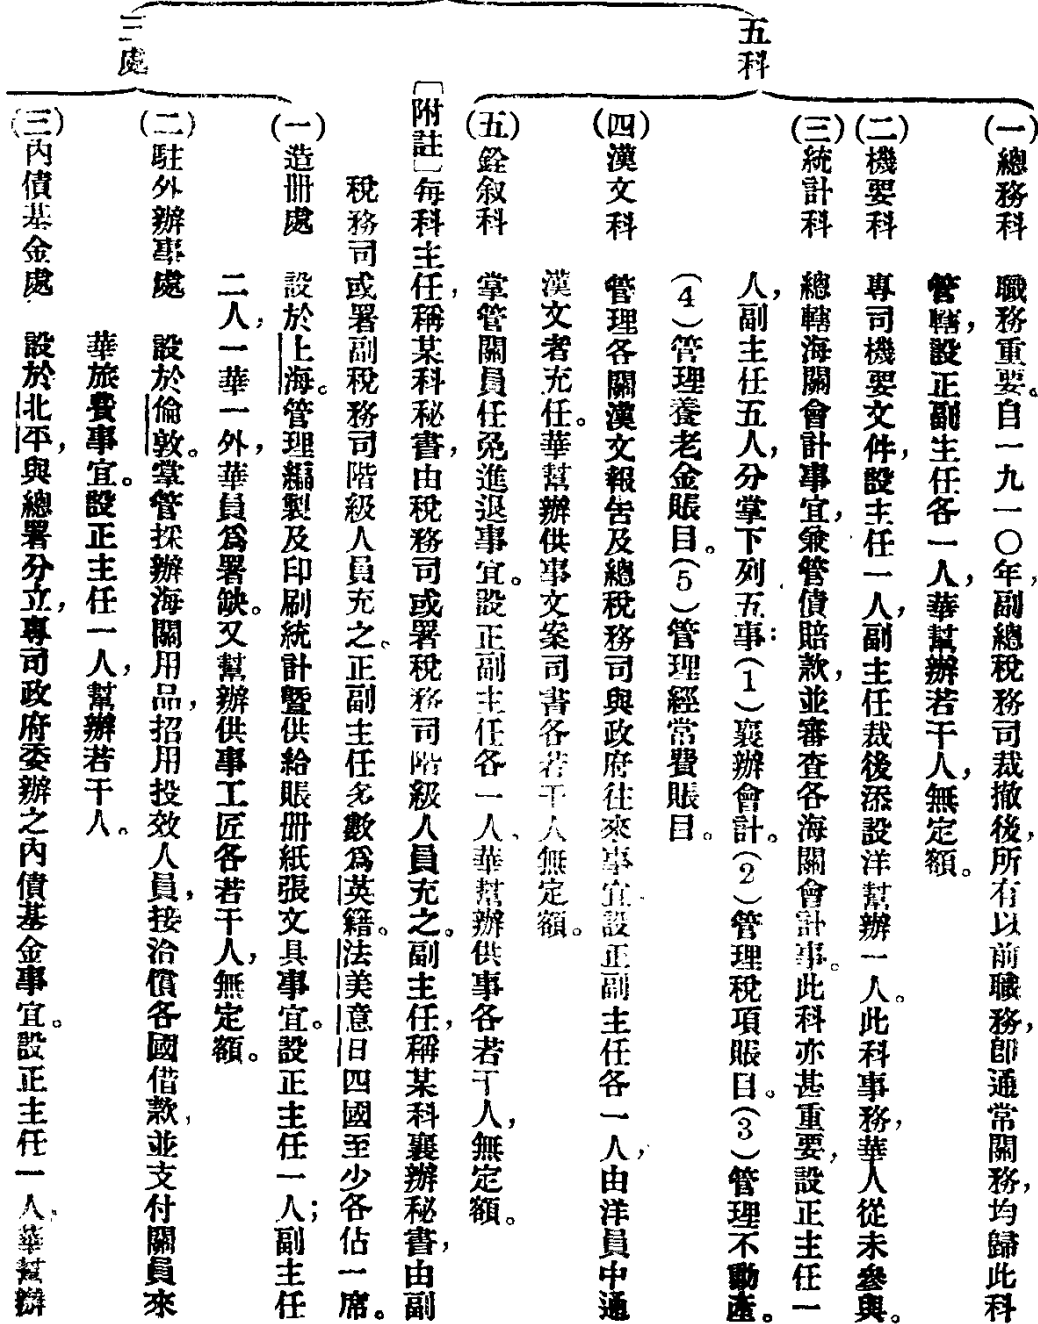 五科
(一)總務科　職務重要。自一九一〇年,副總稅務司裁撤後,所有以前職務,卽通常關務,均歸此科
管轄,設正副主任各一人,華幫辦若干人,無定額。
(二)機要科　專司機要文件,設主任一人,副主任裁後添設洋幫辦一人。此科事務,華人從未參與。
(三)統計科　總轄海關會計事宜,兼管債賠款,並審查各海關會計事。此科亦甚重要,設正主任一
人,副主任五人,分掌下列五事:(1)襄辦會計。(2)管理稅項賬目。(3)管理不動產。
(4)管理養老金賬目。(5)管理經常費賬目。
(四)漢文科　管理各關漢文報告及總稅務司與政府往來事宜設正副主任各一人,由洋員中通
漢文者充任。華幫辦供事文案司書各若干人無定額。
(五)銓叙科　掌管關員任免進退事宜。設正副主任各一人、華幫辦供事各若干人,無定額。
〔附註〕每科主任,稱某科秘書,由稅務司或署稅務司階級人員充之。副主任,稱某科襄辦秘書,由副
稅務司或署副稅務司階級人員充之。正副主任多數爲英籍。法美意日四國至少各佔一席。
三處
(一)造册處　設於上海。管理編製及印刷統計曁供給賬册紙張文具事宜。設正主任一人;副主任
二人,一華一外,華員爲署缺。又幫辦供事工匠各若干人,無定額。
(二)駐外辦事處　設於倫敦。掌管採辦海關用品,招用投效人員,接洽償各國借款,並支付關員來
華旅費事宜。設正主任一人,幫辦若干人。
(三)內債基金處　設於北平,與總署分立,專司政府委辦之內債基金事宜。設正主任一人、華幫辦